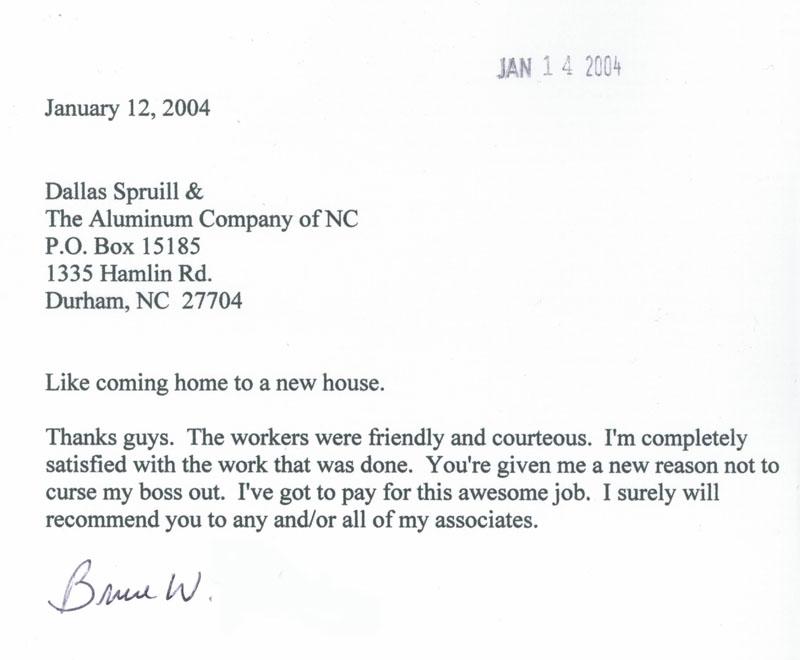 JAN 14 2004
January 12, 2004
Dallas Spruill &
The Aluminum Company of NC
P.O. Box 15185
1335 Hamlin Rd.
Durham, NC  27704
Like coming home to a new house.
Thanks guys.  The workers were friendly and courteous.  I'm completely
satisfied with the work that was done.  You're given me a new reason not to
curse my boss out.  I've got to pay for this awesome job.  I surely will
recommend you to any and/or all of my associates.
Bruce W.